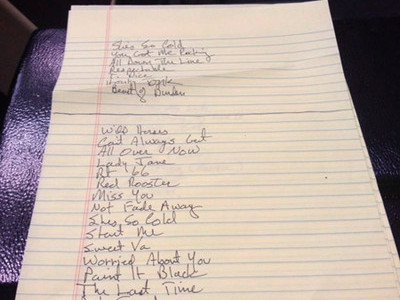 Shes So Cold
You Got Me Rocking
All Down The Line
Respectable
Dice
Honk
Beast of Burden
Wild Horses
Cant Always Get
All Over Now
Lady Jane
Rt 66
Red Rooster
Miss You
Not Fade Away
Shes So Cold
Start Me
Sweet Va
Worried About You
Paint It Black
The Last Time